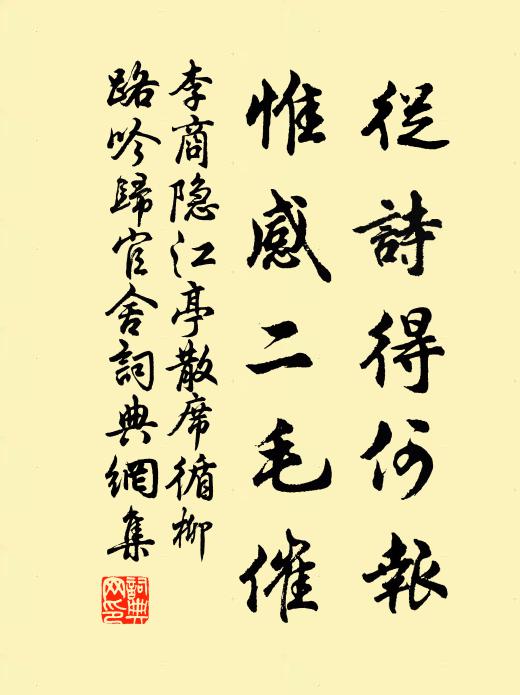 從詩得何報
惟感二毛催
李商隐江亭散席循柳
路吟歸官舍詞典網集
詞典
网印